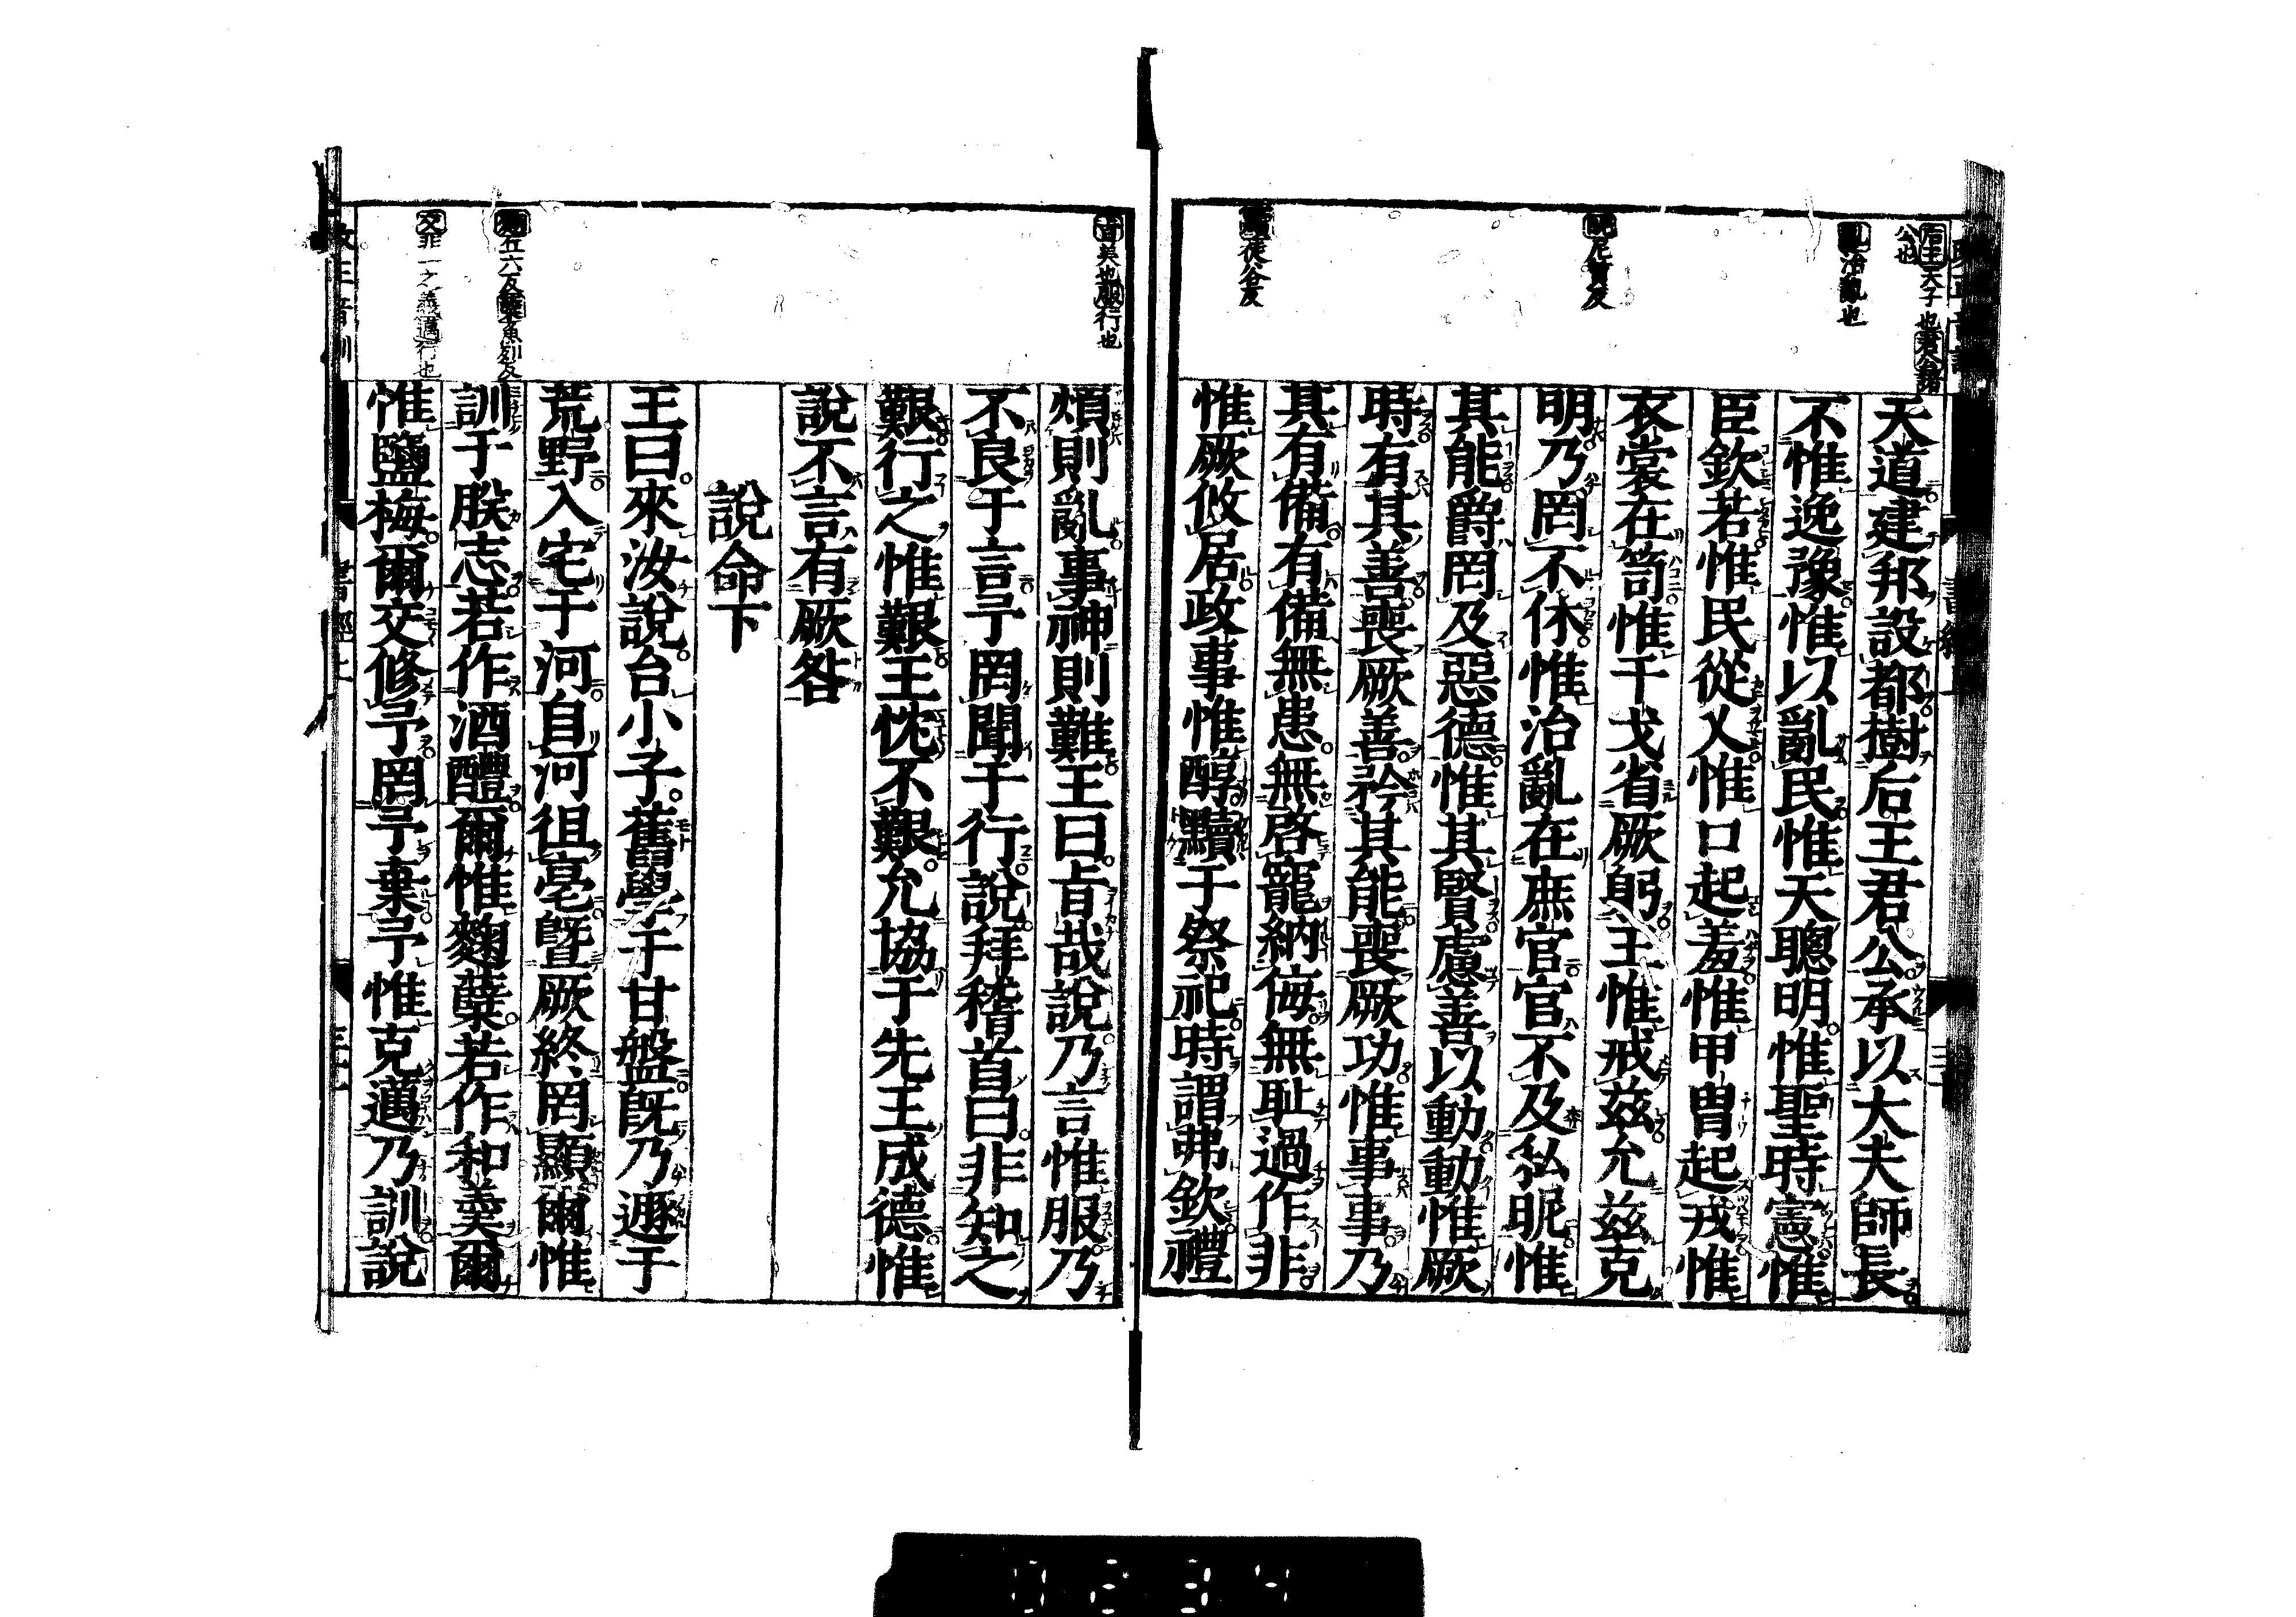 天道建邦設都樹后王君公承以大夫師長
不惟逸豫惟以亂民惟天聰明惟聖時憲惟
臣欽若惟民從乂惟口起羞惟甲冑起戎惟
衣裳在笥惟干戈省厥躬王惟戒茲允茲克
明乃罔不休惟治亂在庶官官不及私昵惟
其能爵罔及惡德惟其賢慮善以動動惟厥
時有其善喪厥善矜其能喪厥功惟事事乃
其有備有備無患無啓寵納侮無耻過作非
惟厥攸居政事惟醇黷于祭祀時謂弗欽禮
煩則亂事神則難王曰旨哉說乃言惟服乃
不良于言予罔聞于行說拜稽首曰非知之
艱行之惟艱王忱不艱允協于先王成德惟
說不言有厥咎
說命下
王曰來汝說台小子舊學于甘盤旣乃遯于
荒野入宅于河自河徂亳曁厥終罔顯爾惟
訓于朕志若作酒醴爾惟麴糵若作和羹爾
惟鹽梅爾交修予罔予棄予惟克邁乃訓說
后王天子也君公諸
公也
亂治亂也
昵尼質反
黷徒谷反
旨美也服行也
麴丘六反糵魚列反
交非一之義邁行也